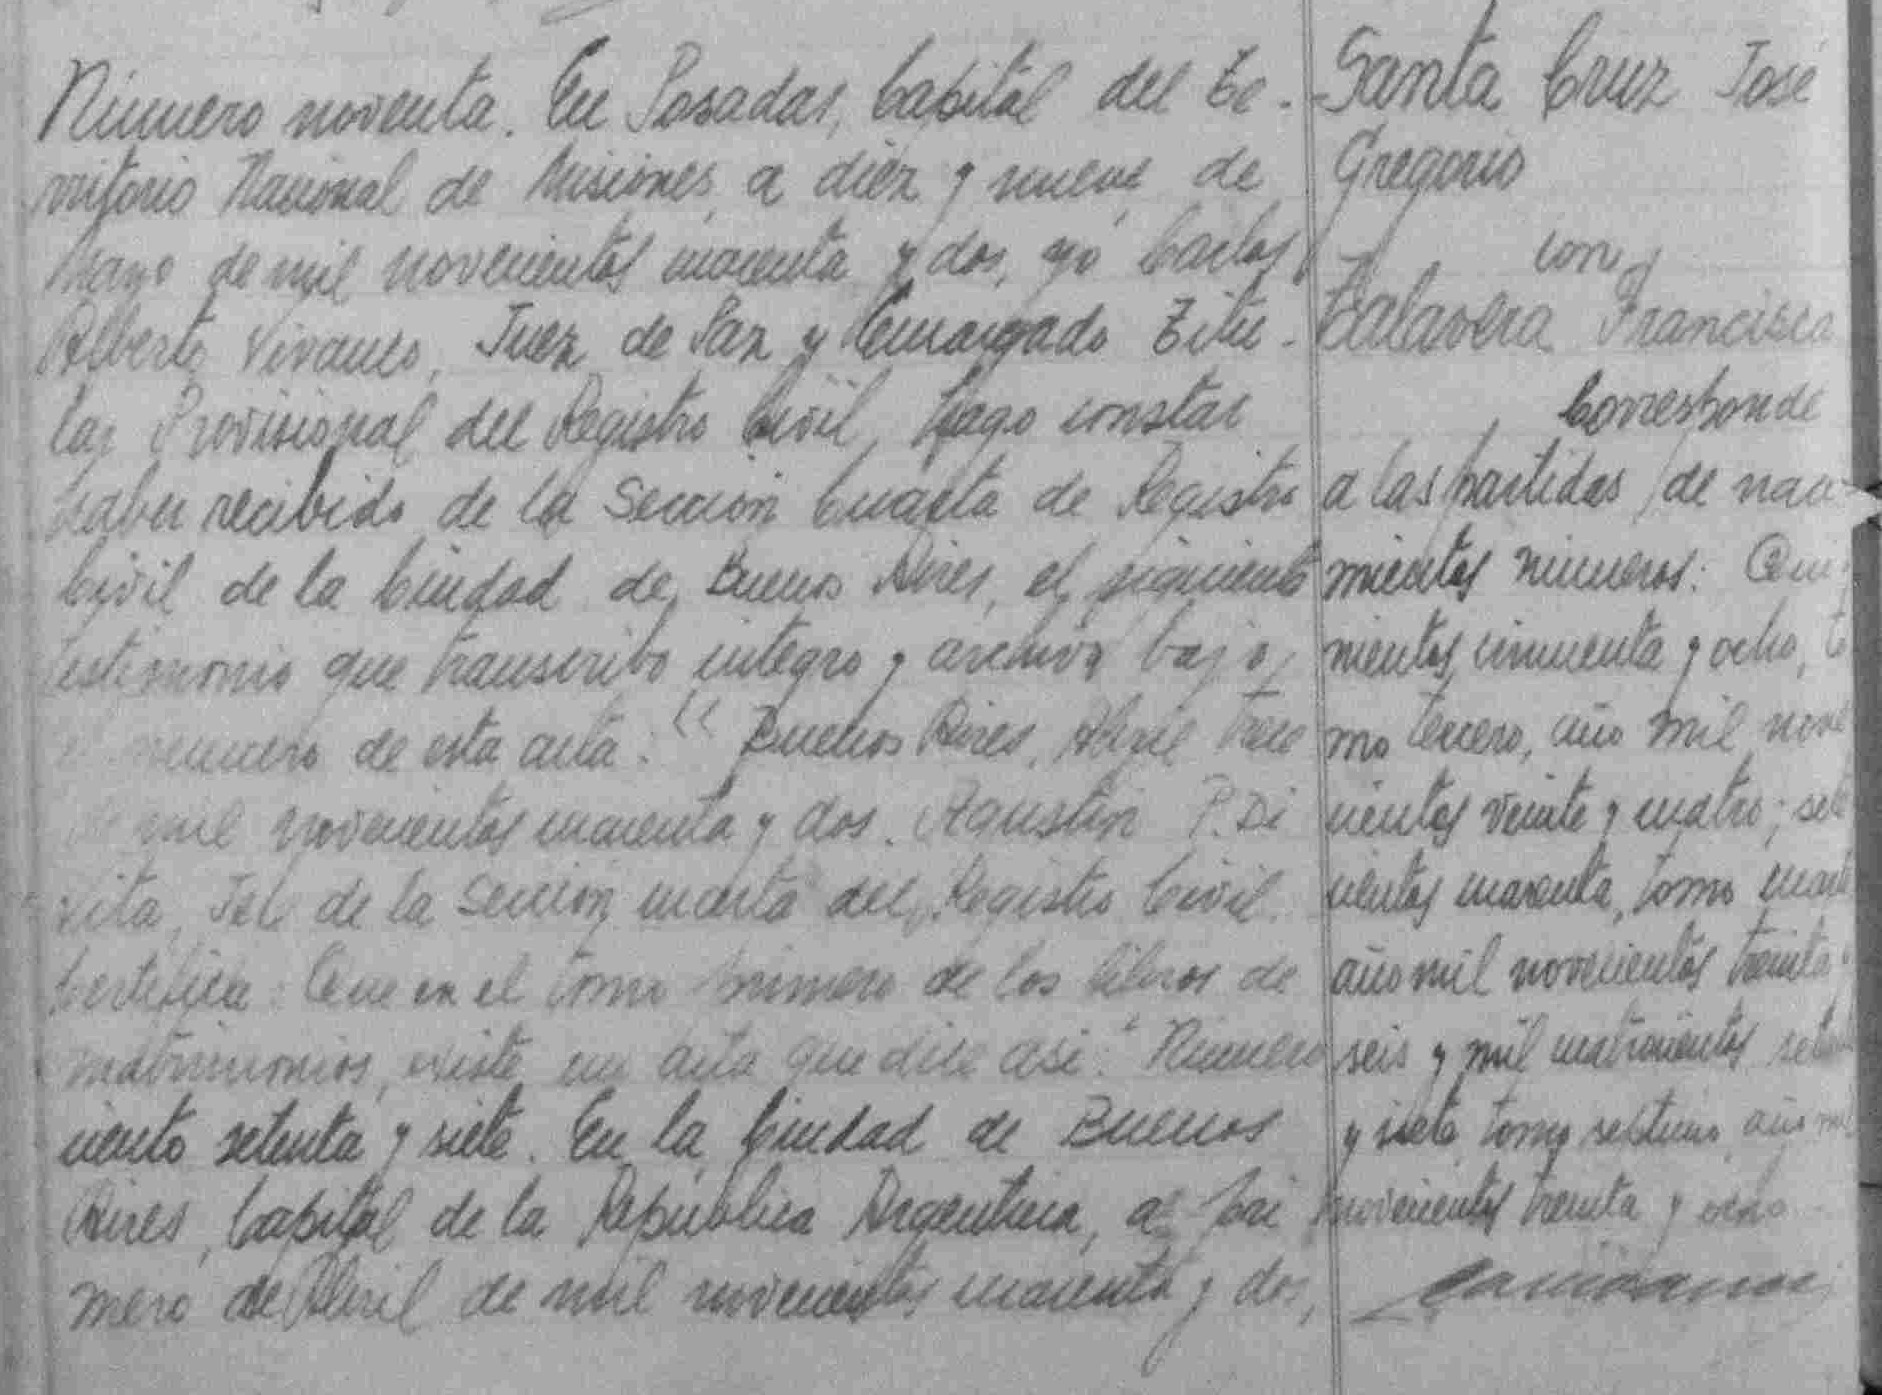 Número noventa. En Posadas, Capital del Te-
rritorio Nacional de Misiones, a diez y nueve de
Mayo de mil novecientos cuarenta y dos, yo Carlos
Alberto Vivanco, Juez de Paz y Encargado Titu-
lar Provisional del Registro Civil, hago constar
haber recibido de la Sección Cuarta de Registro
Civil de la Ciudad de Buenos Aires, el siguiente
testimonio que transcribo integro y archivo bajo
el número de esta acta: "Buenos Aires, Abril trece
de mil novecientos cuarenta y dos. Agustin P. Di
Vita, Jefe de la Sección cuarta del Registro Civil.
Certifica: Que en el tomo primero de los libros de
matrimonios, existe un acta que dice asi: "Número
ciento setenta y siete. En la Ciudad de Buenos
Aires, Capital de la República Argentina, a pri
mero de Abril de mil novecientos cuarenta y dos,
Santa Cruz José
Gregorio
con
Talavera Francisca
Corresponde
a las partidas de naci-
mientos números: Qui-
nientos cincuenta y ocho, to
mo tercero, año mil nove
cientos veinte y cuatro; sete
cientos cuarenta, tomo cuarto
año mil novecientos treinta y
seis y mil cuatrocientos setenta
y siete, tomo septimo, año mil
novecientos treinta y ocho